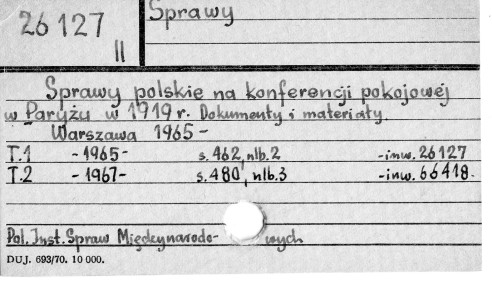 26127
II
Sprawy
Sprawy polskie na konferencji pokojowej
w Paryżu w 1919 r. Dokumenty i materiały.
Warszawa 1965 -
T.1 - 1965 - s. 462, nlb. 2 - inw. 26127
T.2 - 1967 - s. 480, nlb. 3 - inw. 66418.
Pol. Inst. Spraw Międzynarodo- wych
DUJ. 693/70. 10 000.